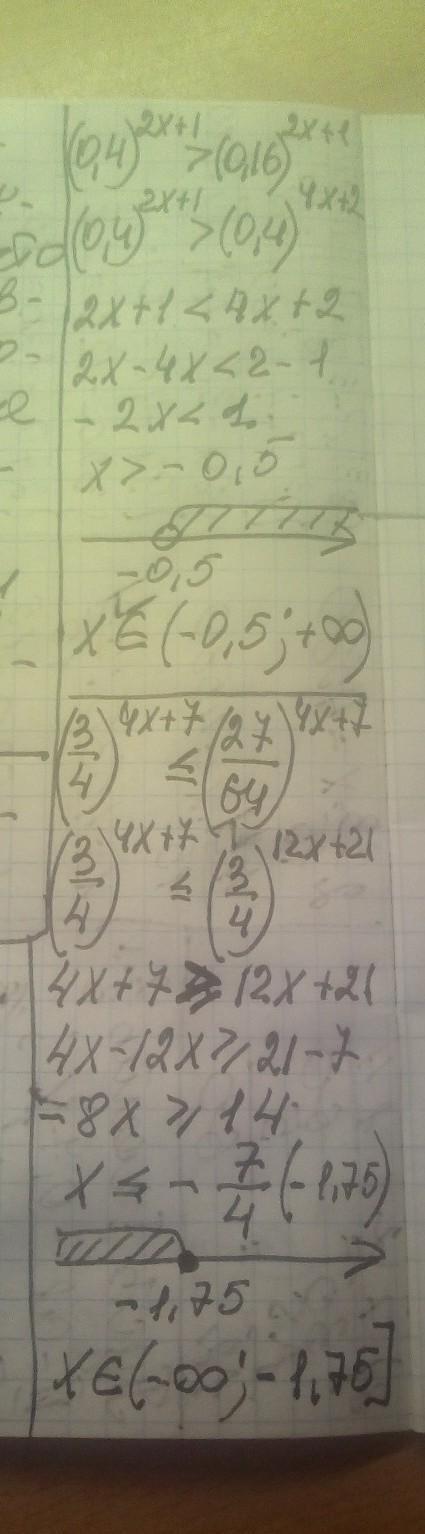 (0,4)^{2x+1} > (0,16)^{2x+1}
(0,4)^{2x+1} > (0,4)^{4x+2}
2x+1 < 4x+2
2x-4x < 2-1
-2x < 1
x > -0,5
-0,5
x ∈ (-0,5; +∞)
(3/4)^{4x+7} ≤ (27/64)^{4x+7}
(3/4)^{4x+7} ≤ (3/4)^{12x+21}
4x+7 ≥ 12x+21
4x-12x ≥ 21-7
-8x ≥ 14
x ≤ -7/4 (-1,75)
-1,75
x ∈ (-∞; -1,75]